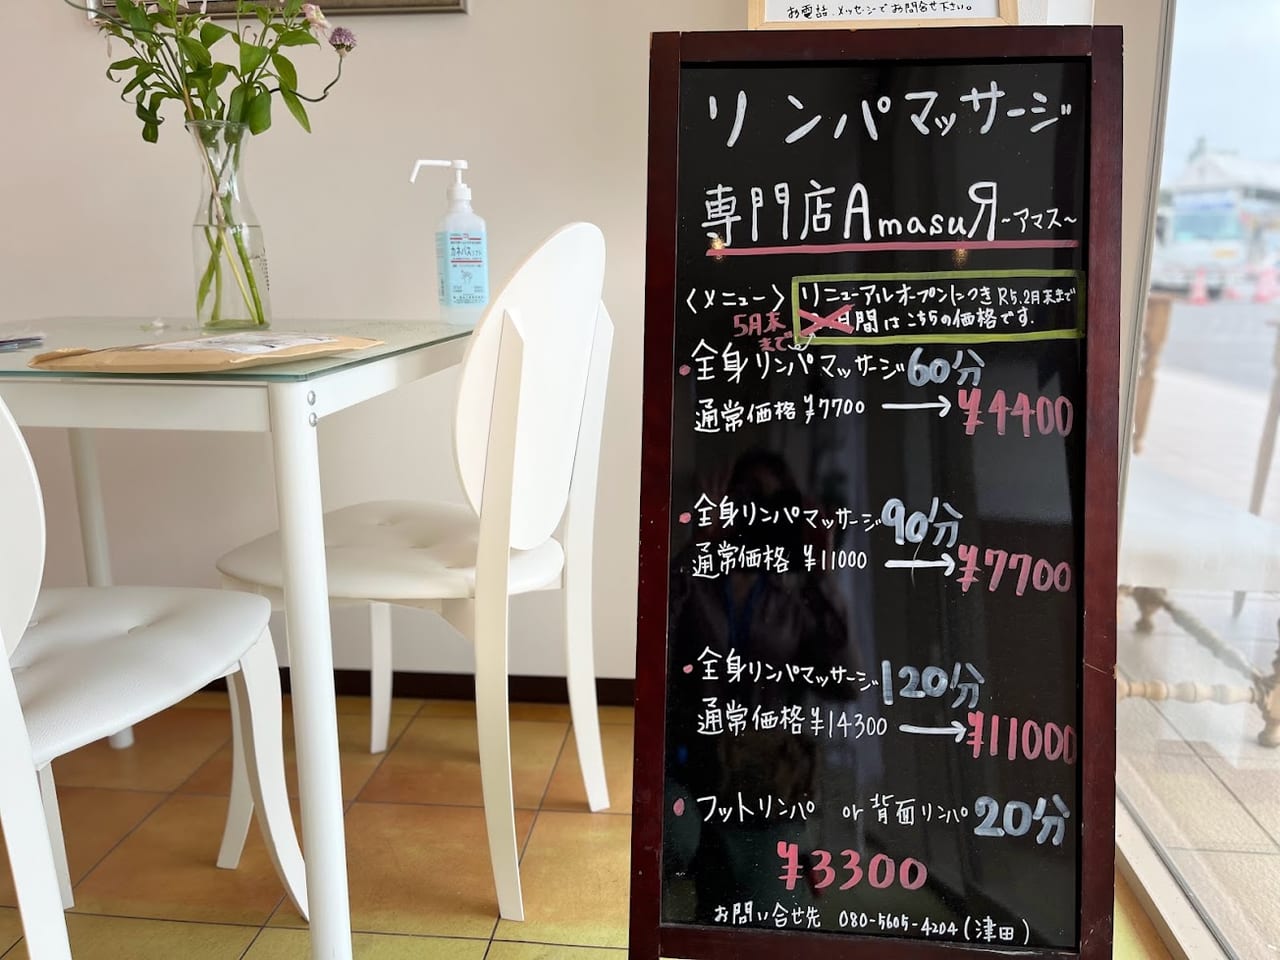 お電話、メッセージでお問合せ下さい。
リンパマッサージ
専門店AmasuЯ～アマス～
〈メニュー〉
リニューアルオープンにつきR5.2月末まで
月間はこちらの価格です.
5月末
まで
全身リンパマッサージ60分
通常価格¥7700 → ¥4400
全身リンパマッサージ90分
通常価格 ¥11000 → ¥7700
全身リンパマッサージ120分
通常価格¥14300 → ¥11000
フットリンパ or 背面リンパ 20分
¥3300
お問い合せ先 080-5605-4204(津田)
カネパス